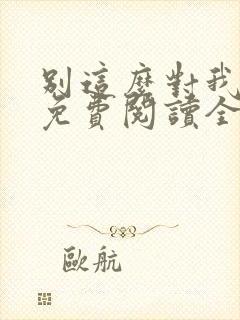 別這麼對我
免費閱讀全
歐航